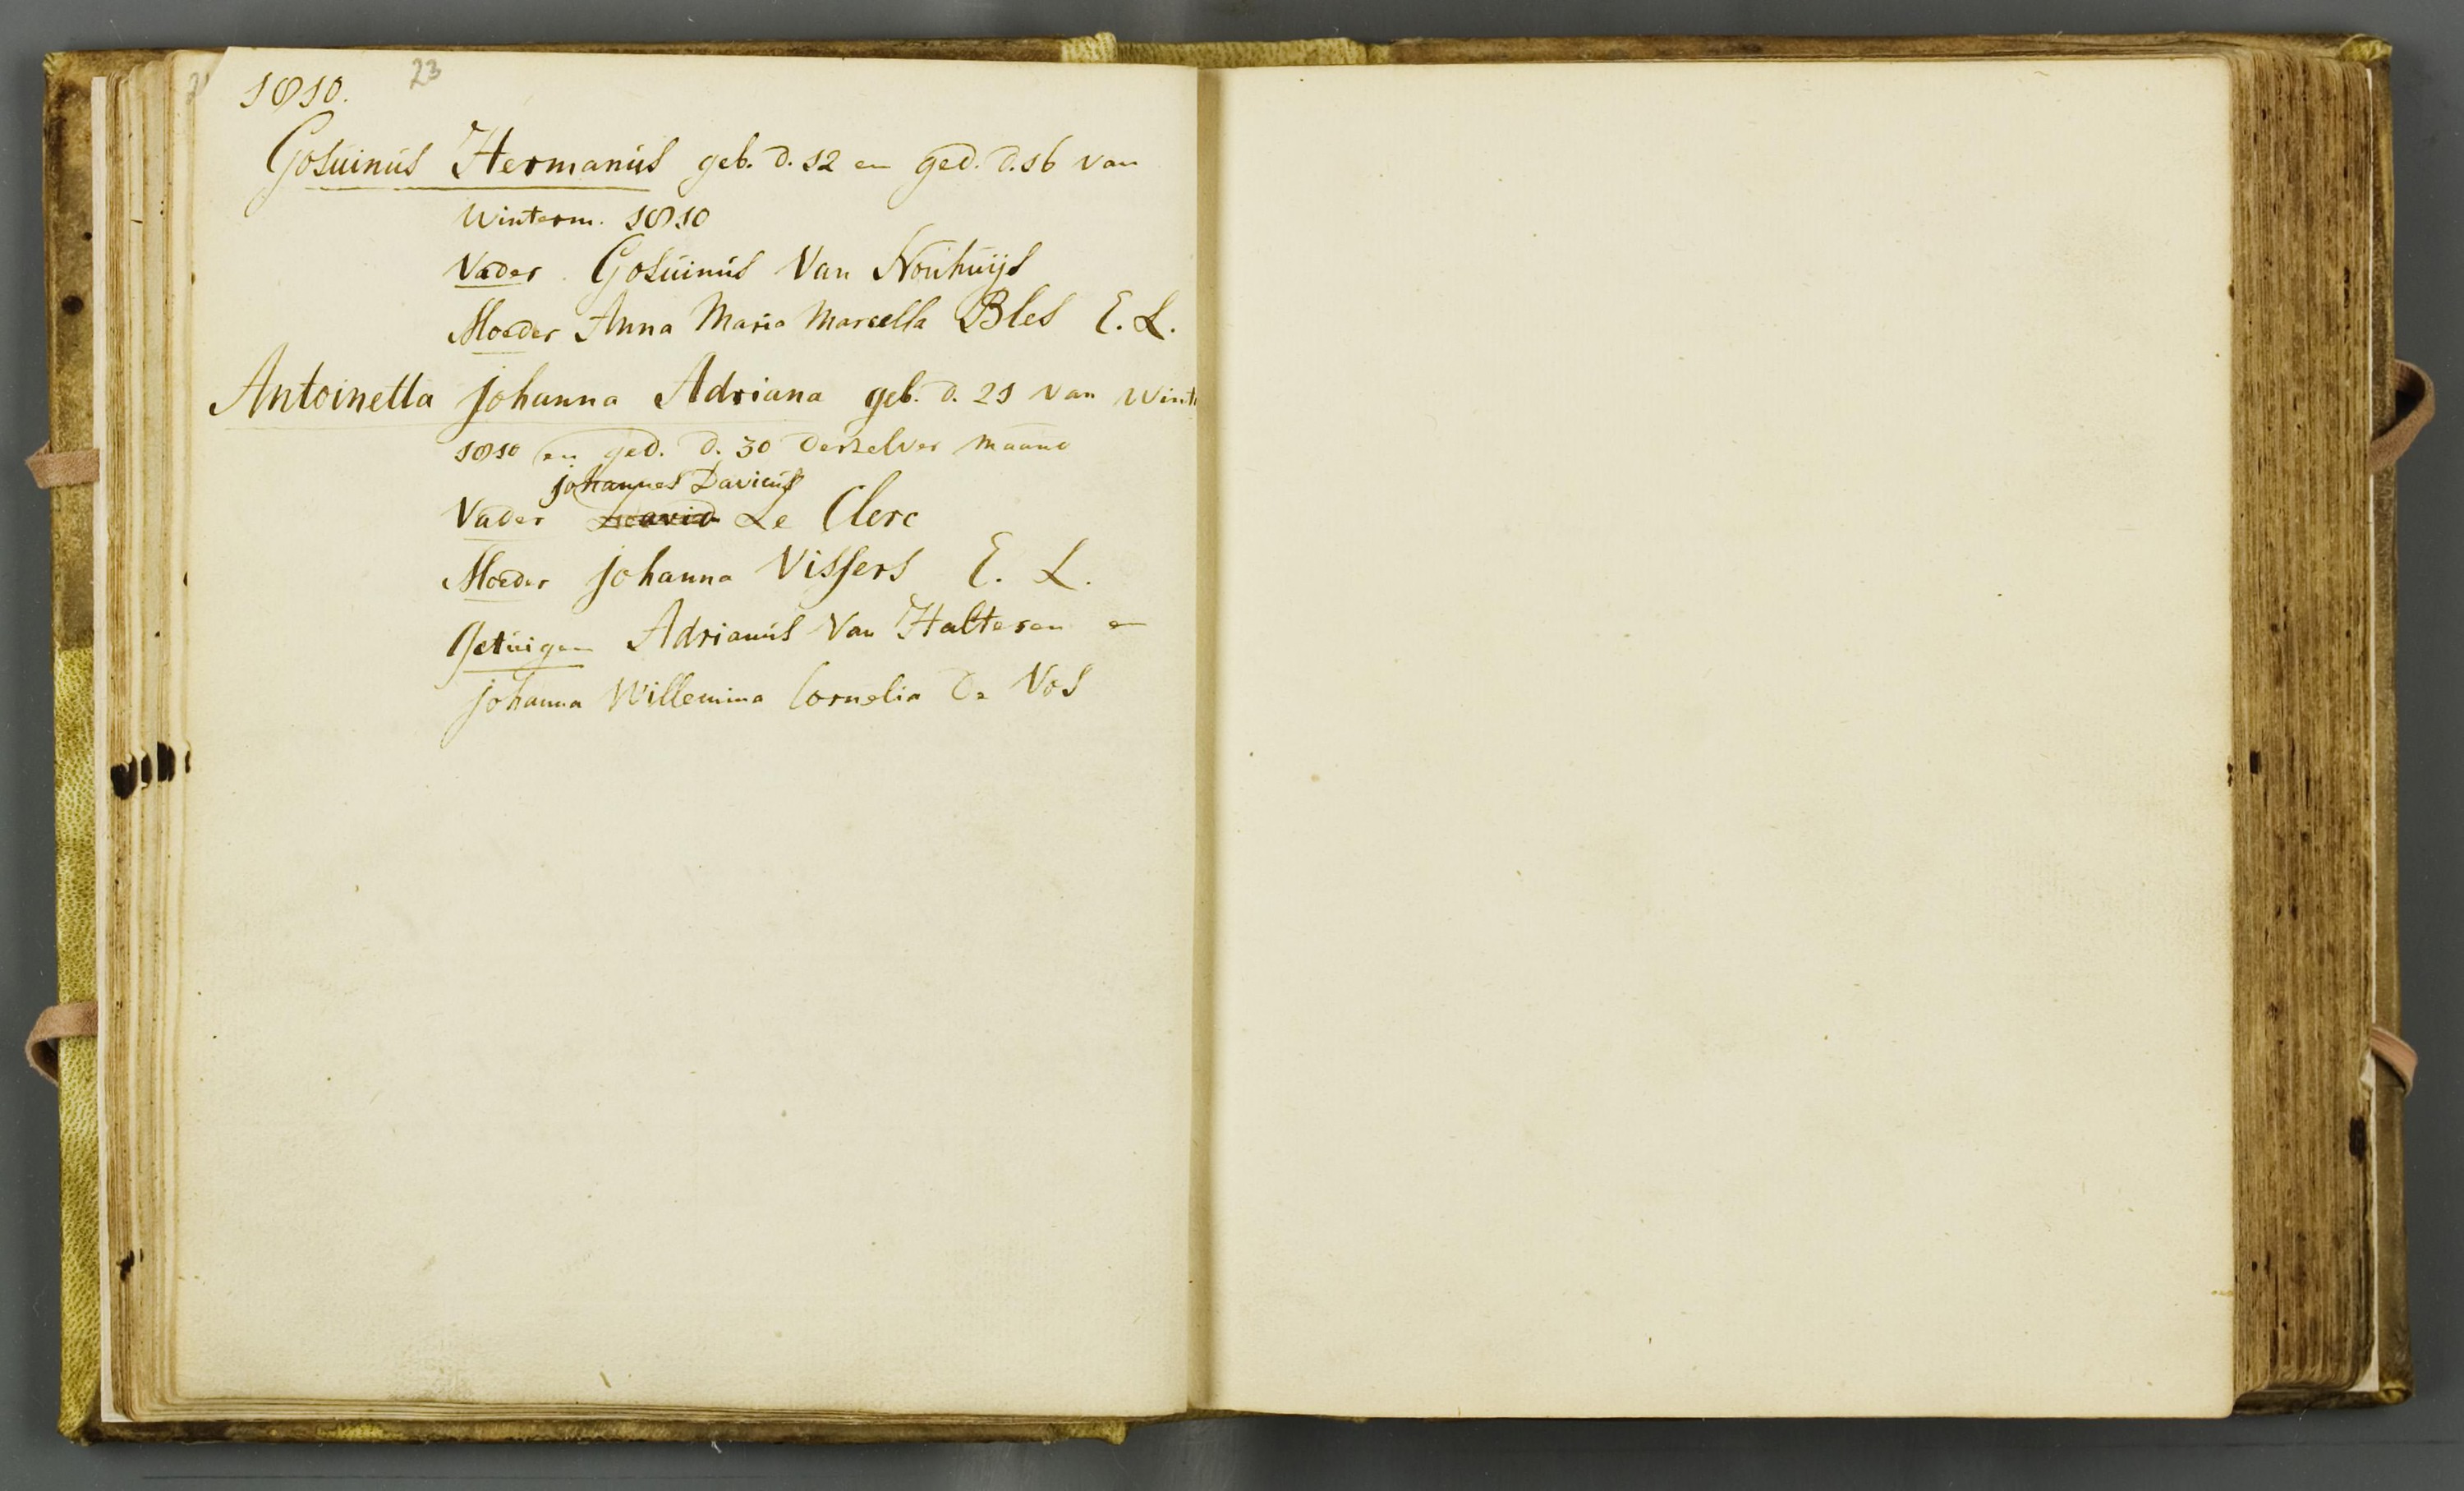 1810. 23
Gosuinus Hermanus geb. d. 12 en ged. d. 16 van
Winterm. 1810
Vader Gosuinus Van Nouhuijs
Moeder Anna Maria Marcella Bles E. L.
Antoinetta Johanna Adriana geb. d. 21 van Wint
1810 en ged. d. 30 derzelver maand
Johannes Davidus
Vader David Le Clerc
Moeder Johanna Vissers E. L.
Getuigen Adrianus Van Halteren en
Johanna Willemina Cornelia De Vos